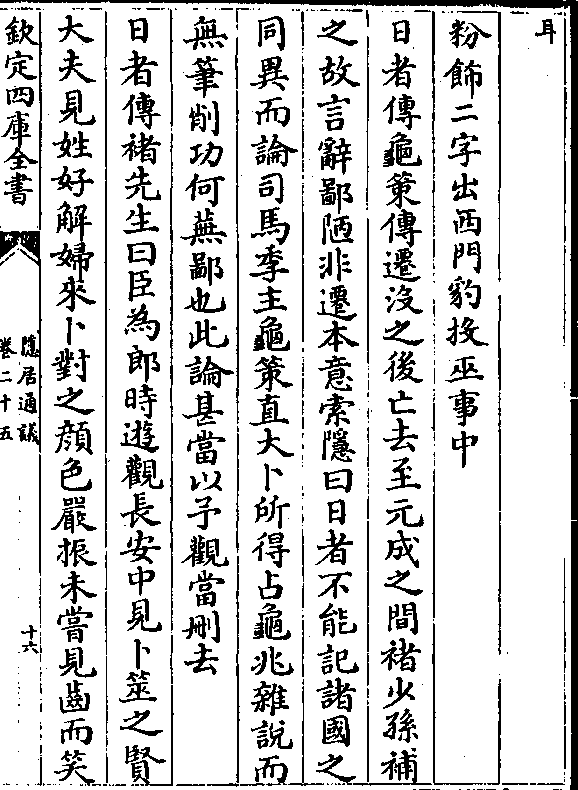 耳
粉飾二字出西門豹投巫事中
日者傳龜策傳遷没之後亡去至元成之間褚少孫補
之故言辭鄙陋非遷本意索隱曰日者不能記諸國之
同異而論司馬季主龜策直大卜所得占龜兆雜說而
無筆削功何蕪鄙也此論甚當以予觀當刪去
日者傳褚先生曰臣為郎時遊觀長安中見卜筮之賢
大夫見姓好解婦來卜對之顔色嚴振未嘗見齒而笑
欽定四庫全書
隱居通議
卷二十五
十六